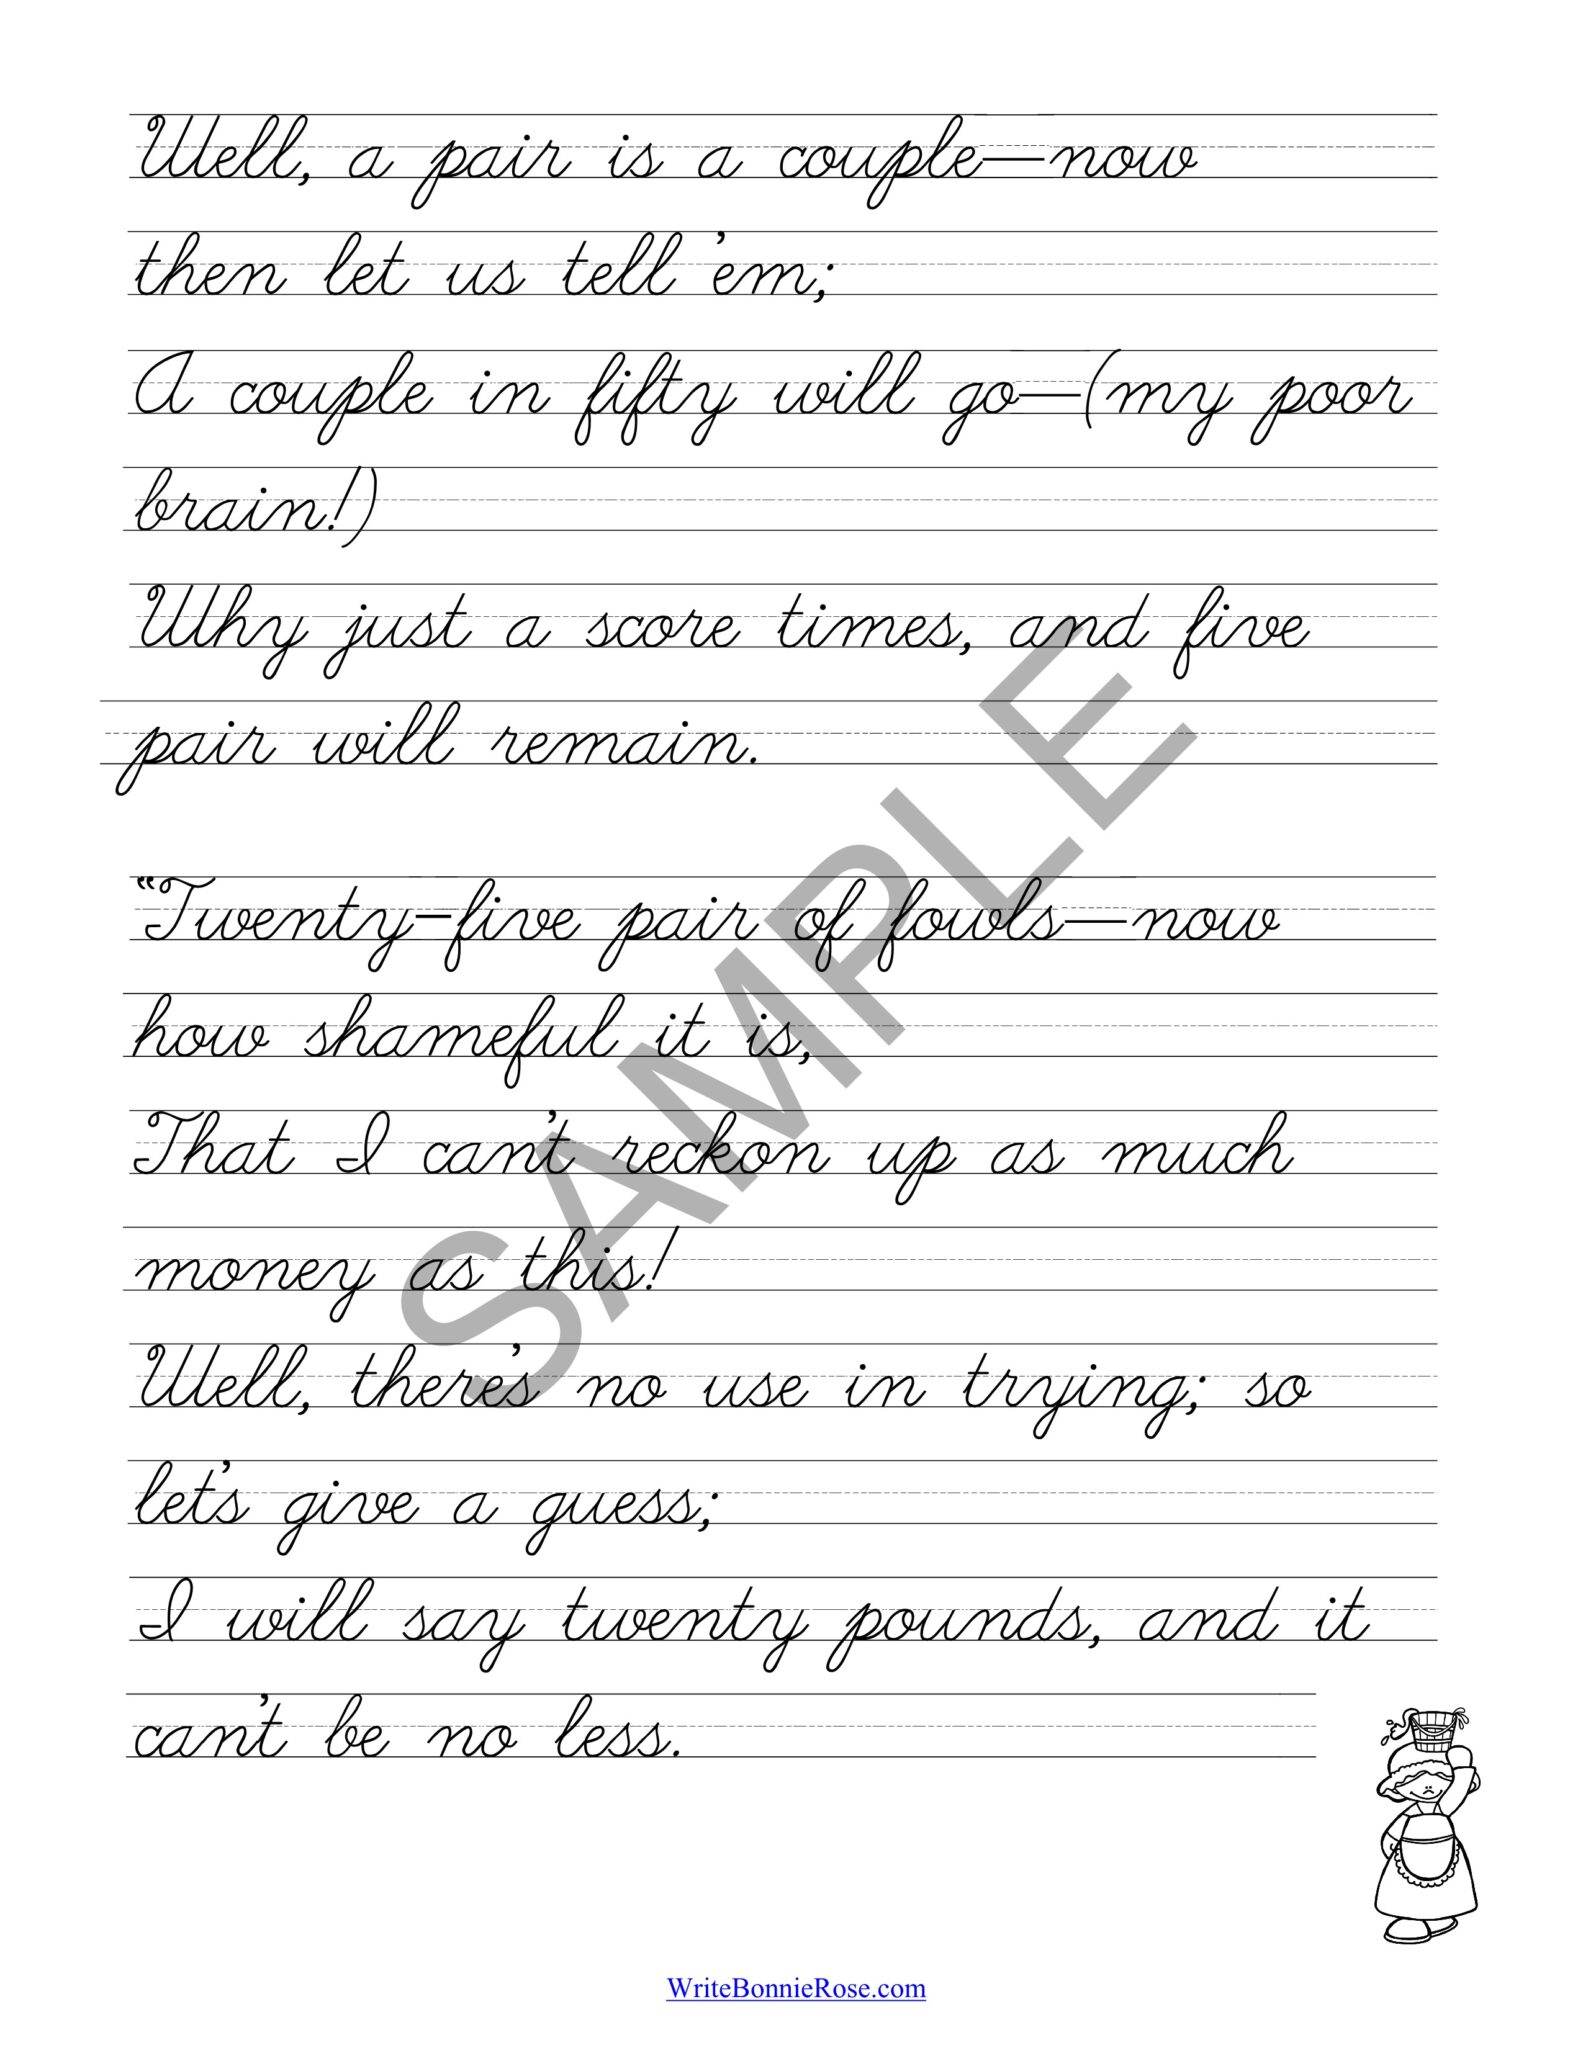 Well, a pair is a couple—now
then let us tell 'em;
A couple in fifty will go—(my poor
brain!)
Why just a score times, and five
pair will remain.
“Twenty-five pair of fowls—now
how shameful it is,
That I can't reckon up as much
money as this!
Well, there's no use in trying; so
let's give a guess;
I will say twenty pounds, and it
can't be no less.
SAMPLE
WriteBonnieRose.com